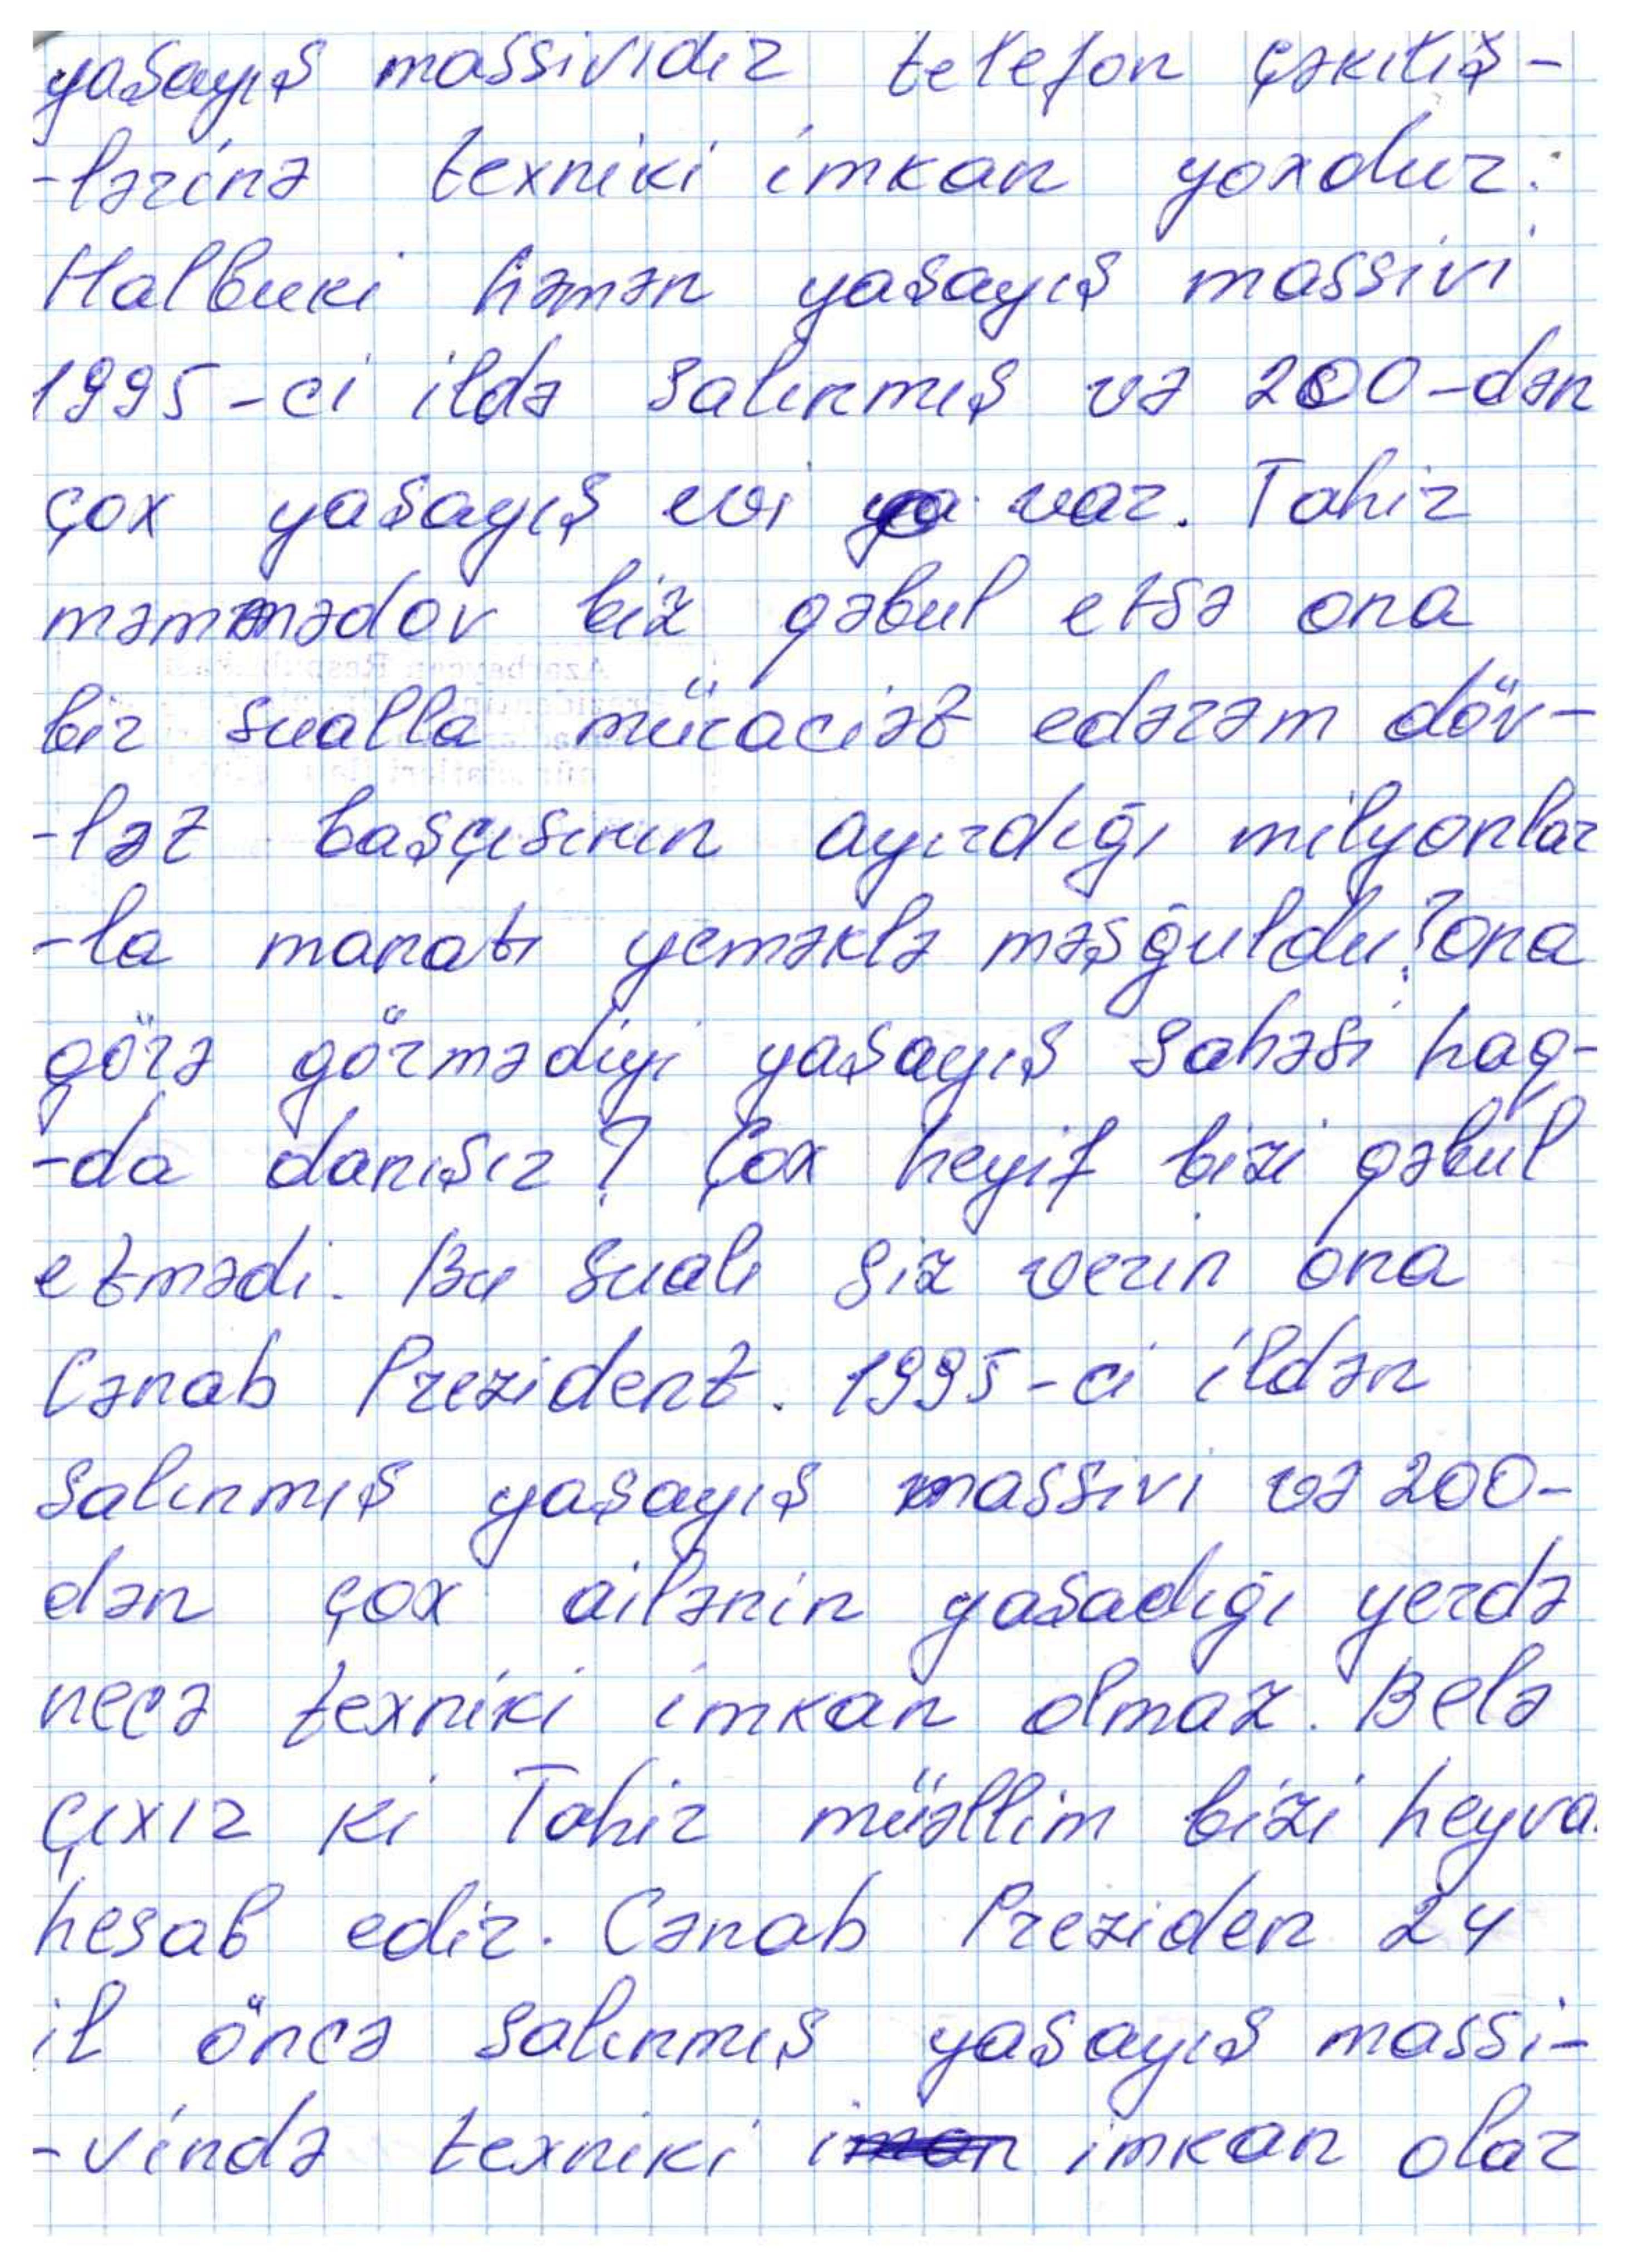 yaşayış massividir telefon çəkiliş-
-lərinə texniki imkan yoxdur.
Halbuki həmən yaşayış massivi
1995-ci ildə salınmış və 200-dən
çox yaşayış evi var. Tahir
məmmədov biz qəbul etsə ona
bir sualla müraciət edərəm döv-
-lət başçısının ayırdığı milyonlar
-la manatı yeməklə məşğuldu? ona
görə görmədiyi yaşayış sahəsi haq-
-da danışır? Çox heyif bizi qəbul
etmədi. Bu sualı siz verin ona
Cənab Prezident. 1995-ci ildən
salınmış yaşayış massivi və 200-
dən çox ailənin yaşadığı yerdə
necə texniki imkan olmaz. Belə
çıxır ki Tahir müəllim bizi heyva
hesab edir. Cənab Preziden 24
il öncə salınmış yaşayış massi-
-vində texniki imkan olar